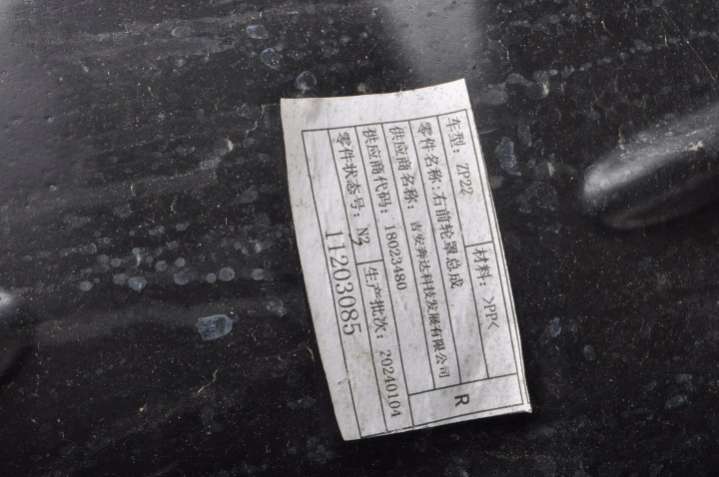 车型：ZP22 材料：>PP<
零件名称：右前轮罩总成
供应商名称：吉安奔达科技发展有限公司 R
供应商代码：18023480
零件状态号：N3 生产批次：20240104
11203085